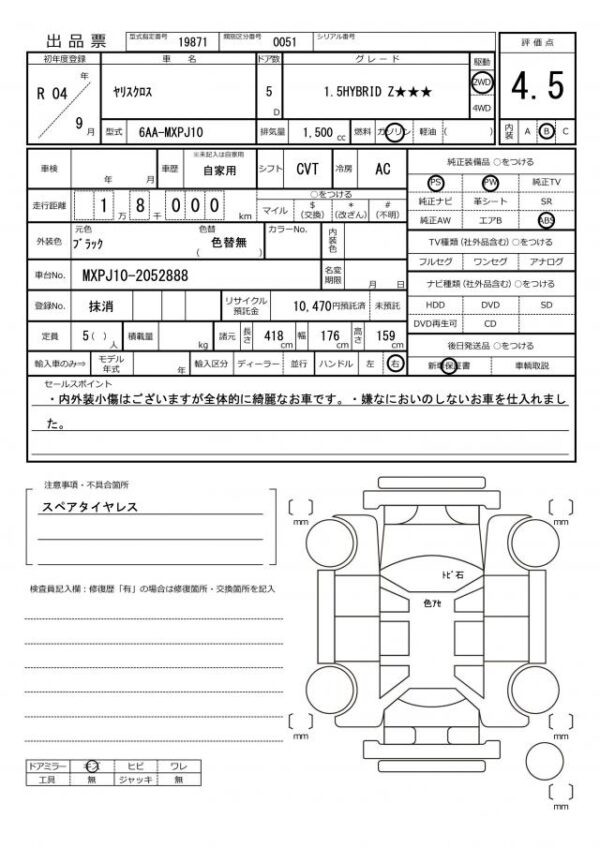 出品票 型式指定番号 19871 類別区分番号 0051 シリアル番号
初年度登録 車名 ドア数 グレード 駆動 評価点
R 04 年 9 月 ヤリスクロス 5 D 1.5HYBRID Z★★★ 2WD 4WD 4.5
型式 6AA-MXPJ10 排気量 1,500 cc 燃料 ガソリン 軽油 ( ) 内装 A B C
※未記入は自家用
車検 年 月 車歴 自家用 シフト CVT 冷房 AC 純正装備品 ○をつける
PS PW 純正TV
走行距離 1 万 8 千 0 0 0 km ○をつける 純正ナビ 革シート SR
マイル $ (交換) * (改ざん) # (不明) 純正AW エアB ABS
外装色 元色 ブラック 色替 色替無 ( ) カラーNo. 内装色 TV種類 (社外品含む) ○をつける
フルセグ ワンセグ アナログ
車台No. MXPJ10-2052888 名変期限 月 日 ナビ種類 (社外品含む) ○をつける
登録No. 抹消 リサイクル預託金 10,470円預託済 未預託 HDD DVD SD
DVD再生可 CD
定員 5 ( ) 人 積載量 kg 諸元 長さ 418 cm 幅 176 cm 高さ 159 cm 後日発送品 ○をつける
輸入車のみ⇒ モデル年式 年 輸入区分 ディーラー 並行 ハンドル 左 右 新車保証書 車輌取説
セールスポイント
・内外装小傷はございますが全体的に綺麗なお車です。・嫌なにおいのしないお車を仕入れまし
た。
注意事項・不具合箇所
スペアタイヤレス
検査員記入欄：修復歴「有」の場合は修復箇所・交換箇所を記入
〔 〕 mm
〔 〕 mm
ﾄﾋﾞ石
色ｱｾ
〔 〕 mm
〔 〕 mm
〔 〕 mm
ドアミラー キズ ヒビ ワレ
工具 無 ジャッキ 無